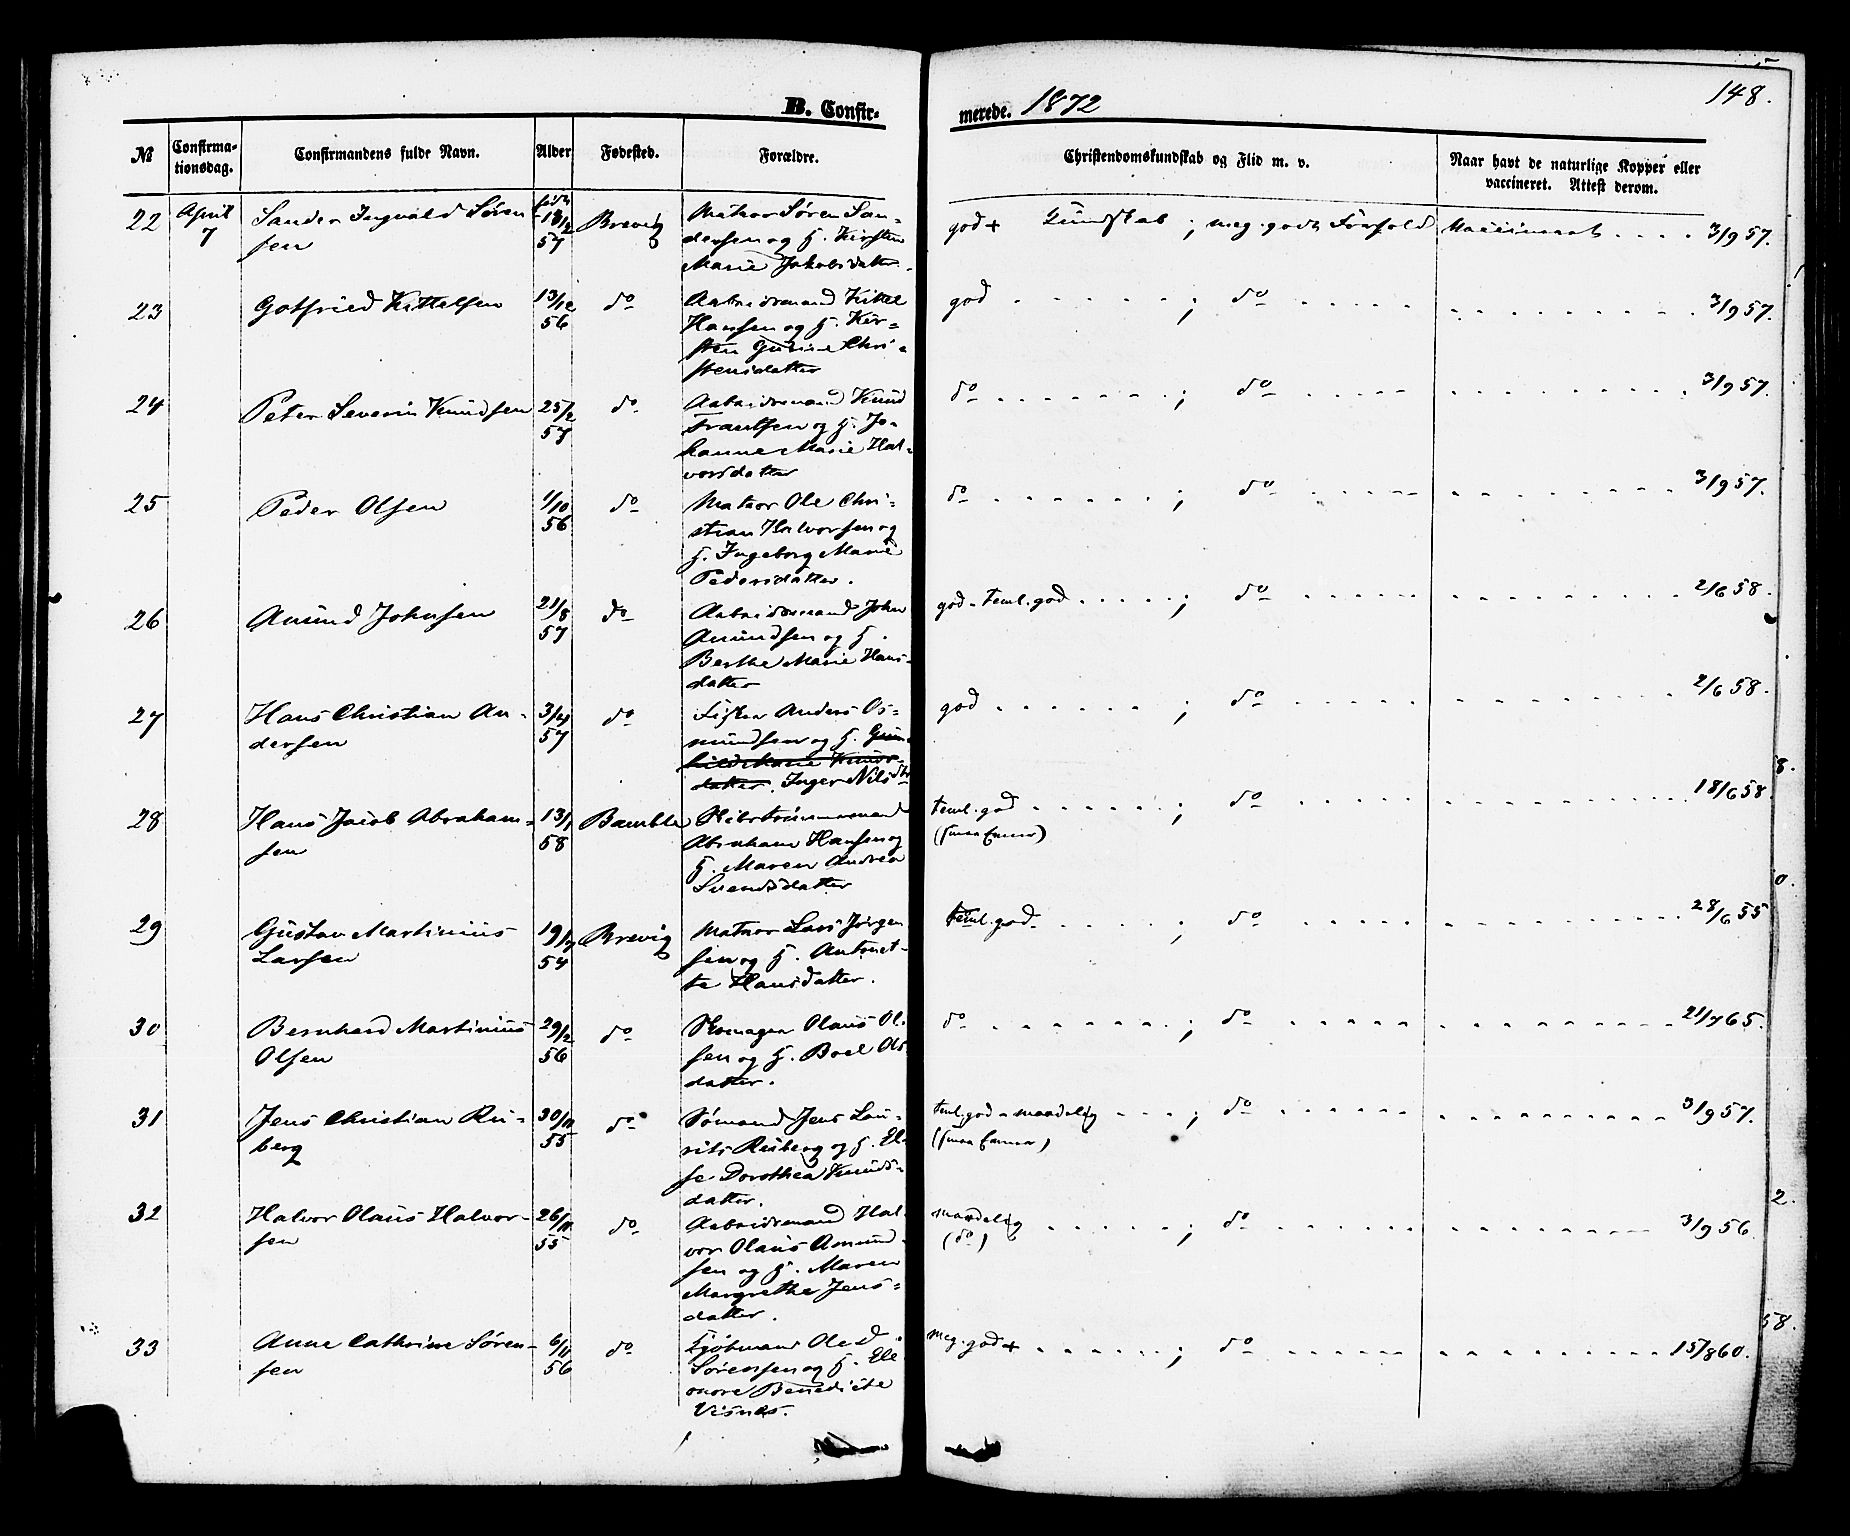 B. Confir-
merede. 1872
148.
№
Confirma-
tionsdag.
Confirmandens fulde Navn.
Alder
Fødested.
Forældre.
Christendomskundskab og Flid m. v.
Naar havt de naturlige Kopper eller
vaccineret. Attest derom.
22 April Sander Ingvald Søren
7 sen
født
57
Brevig
Matros Søren San-
dersen og H. Kirsten
Marie Jakobsdatter.
god + Kundskab ; meg. godt Forhold
Vaccineret . . . . 3/9 57.
23 Gotfried Kittelsen 13/12
56
do
Arbeidsmand Kittel
Hansen og H. Kir-
sten Gurine Chri-
stensdatter
god . . . . . ; do . . . . . 3/9 57.
24 Peter Severin Knudsen 25/2
57
do
Arbeidsmand Knud
Frantsen og H. Jo-
hanne Marie Hal-
vorsdatter
do . . . . . ; do . . . . . 3/9 57.
25 Peder Olsen 1/10
56
do
Matros Ole Chri-
stian Halvorsen og
H. Ingeborg Marie
Pedersdatter.
do . . . . . ; do . . . . . 3/9 57.
26 Amund Johnsen 21/8
57
do
Arbeidsmand John
Amundsen og H.
Berthe Marie Hans-
datter
god - teml. god . . . . . ; do . . . . . 2/6 58.
27 Hans Christian An-
dersen
57
do
Fisker Anders Os-
mundsen og H. Gun-
hild Marie Knuds-
datter. Inger Nilsdtr
god . . . . . ; do . . . . . 2/6 58.
28 Hans Jacob Abraham-
sen
13/1
58
Bamble
Skibstømmermand
Abraham Hansen og
H. Maren Andrea
Svendsdatter
teml. god . . . . . ; do . . . . . 18/6 58
(smaa Evner)
29 Gustav Martinius
Larsen
54
Brevig
Matros Lars Jørgen
sen og H. Antonet-
te Hansdatter.
teml. god . . . . . ; do . . . . . 28/6 55
30 Bernhard Martinius
Olsen
29/2
56
do
Skomager Olaus Ol-
sen og H. Boel Ols-
datter.
do . . . . . ; do . . . . . 21/7 65.
31 Jens Christian Ru-
berg
30/11
55
do
Sømand Jens Lau-
rits Ruberg og H. El-
se Dorothea Knuds-
datter.
teml. god - maadelig . . . ; do . . . . . 3/9 57.
(smaa Evner)
32 Halvor Olaus Halvor-
sen
26/11
55
do
Arbeidsmand Hal-
vor Olaus Amund-
sen og H. Maren
Margrethe Jens-
datter.
maadelig . . . . . ; do . . . . . 3/9 56.
(do)
33 Anne Cathrine Søren-
sen
6/11
56
do
Kjøbmand Ole D.
Sørensen og H. Ele
onore Benedicte
Visnes.
meg. god + . . . . . ; do . . . . . 15/8 60.
8.
0.
2.
58.